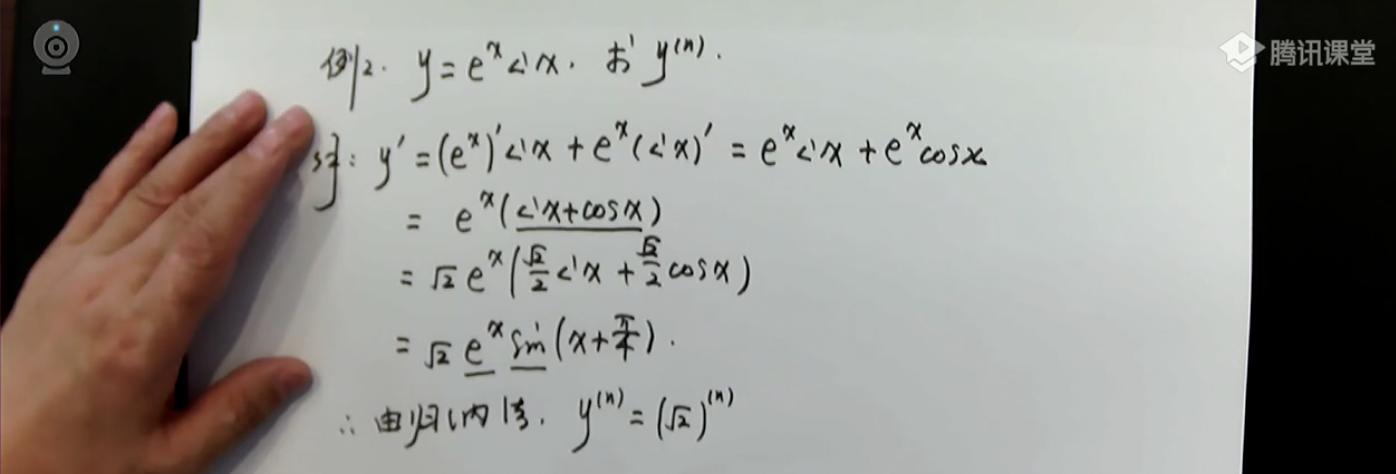 腾讯课堂
例2. y = eˣ sin x. 求 y⁽ⁿ⁾.
解: y' = (eˣ)' sin x + eˣ (sin x)' = eˣ sin x + eˣ cos x
= eˣ (sin x + cos x)
= √2 eˣ (√2/2 sin x + √2/2 cos x)
= √2 eˣ sin (x + π/4).
∴ 由归纳法. y⁽ⁿ⁾ = (√2)⁽ⁿ⁾